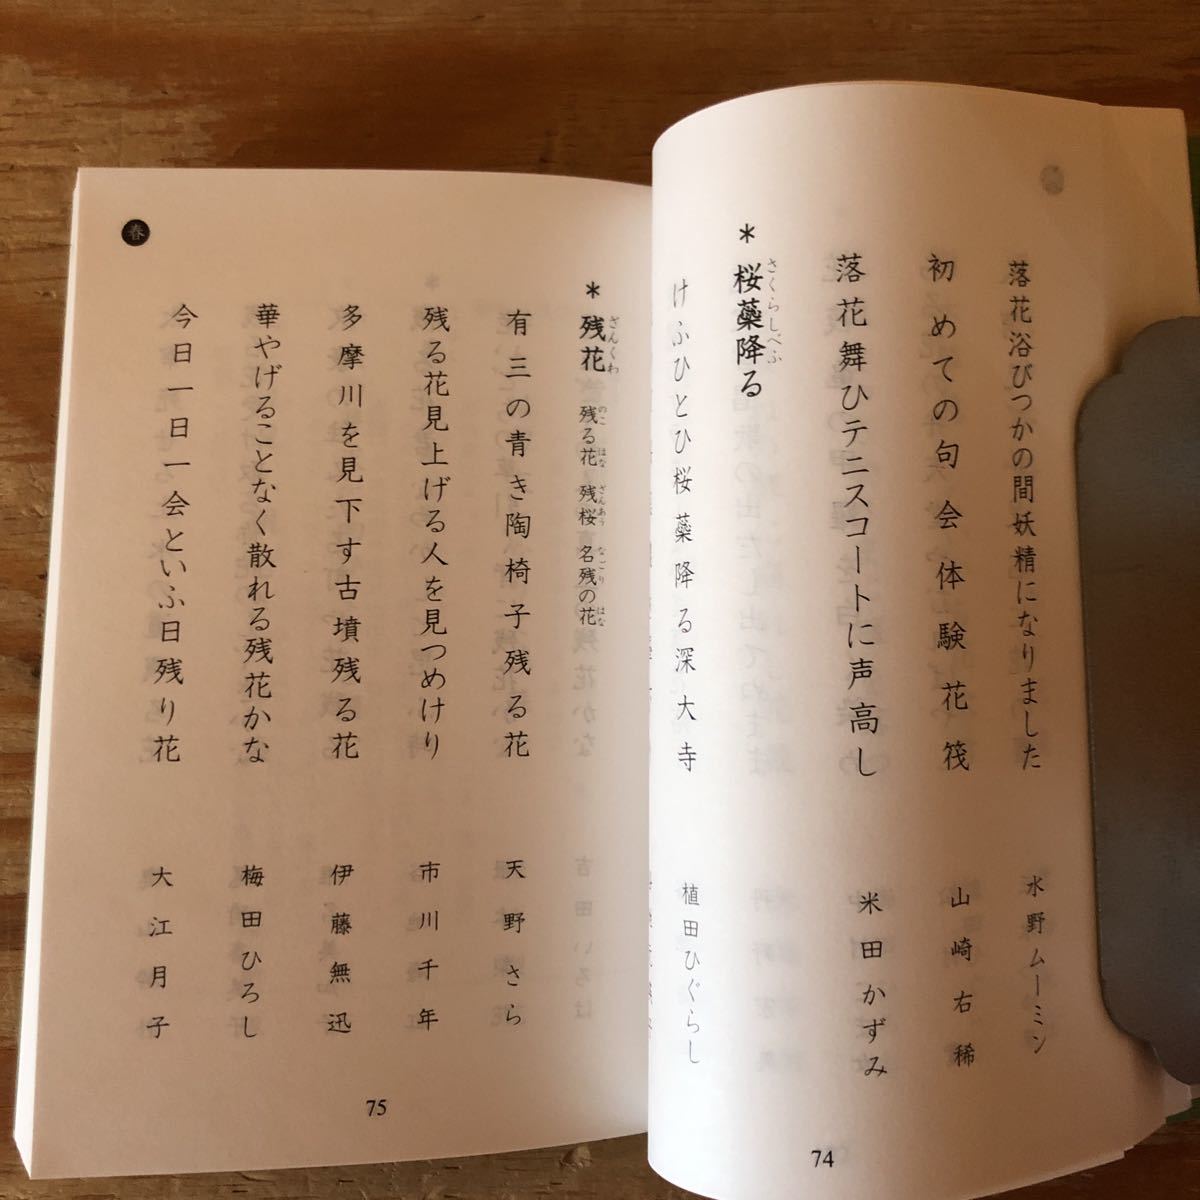 落花浴びつかの間妖精になりました 水野ムーミン
初めての句会体験花筏 山崎右稀
落花舞ひテニスコートに声高し 米田かずみ
＊桜蘂降る さくらしべふ
けふひとひ桜蘂降る深大寺 植田ひぐらし
74
春
＊残花 ざんくわ 残る花 のこ はな 残桜 ざんあう 名残の花 なごり はな
有三の青き陶椅子残る花 天野さら
残る花見上げる人を見つめけり 市川千年
多摩川を見下す古墳残る花 伊藤無迅
華やげることなく散れる残花かな 梅田ひろし
今日一日一会といふ日残り花 大江月子
75